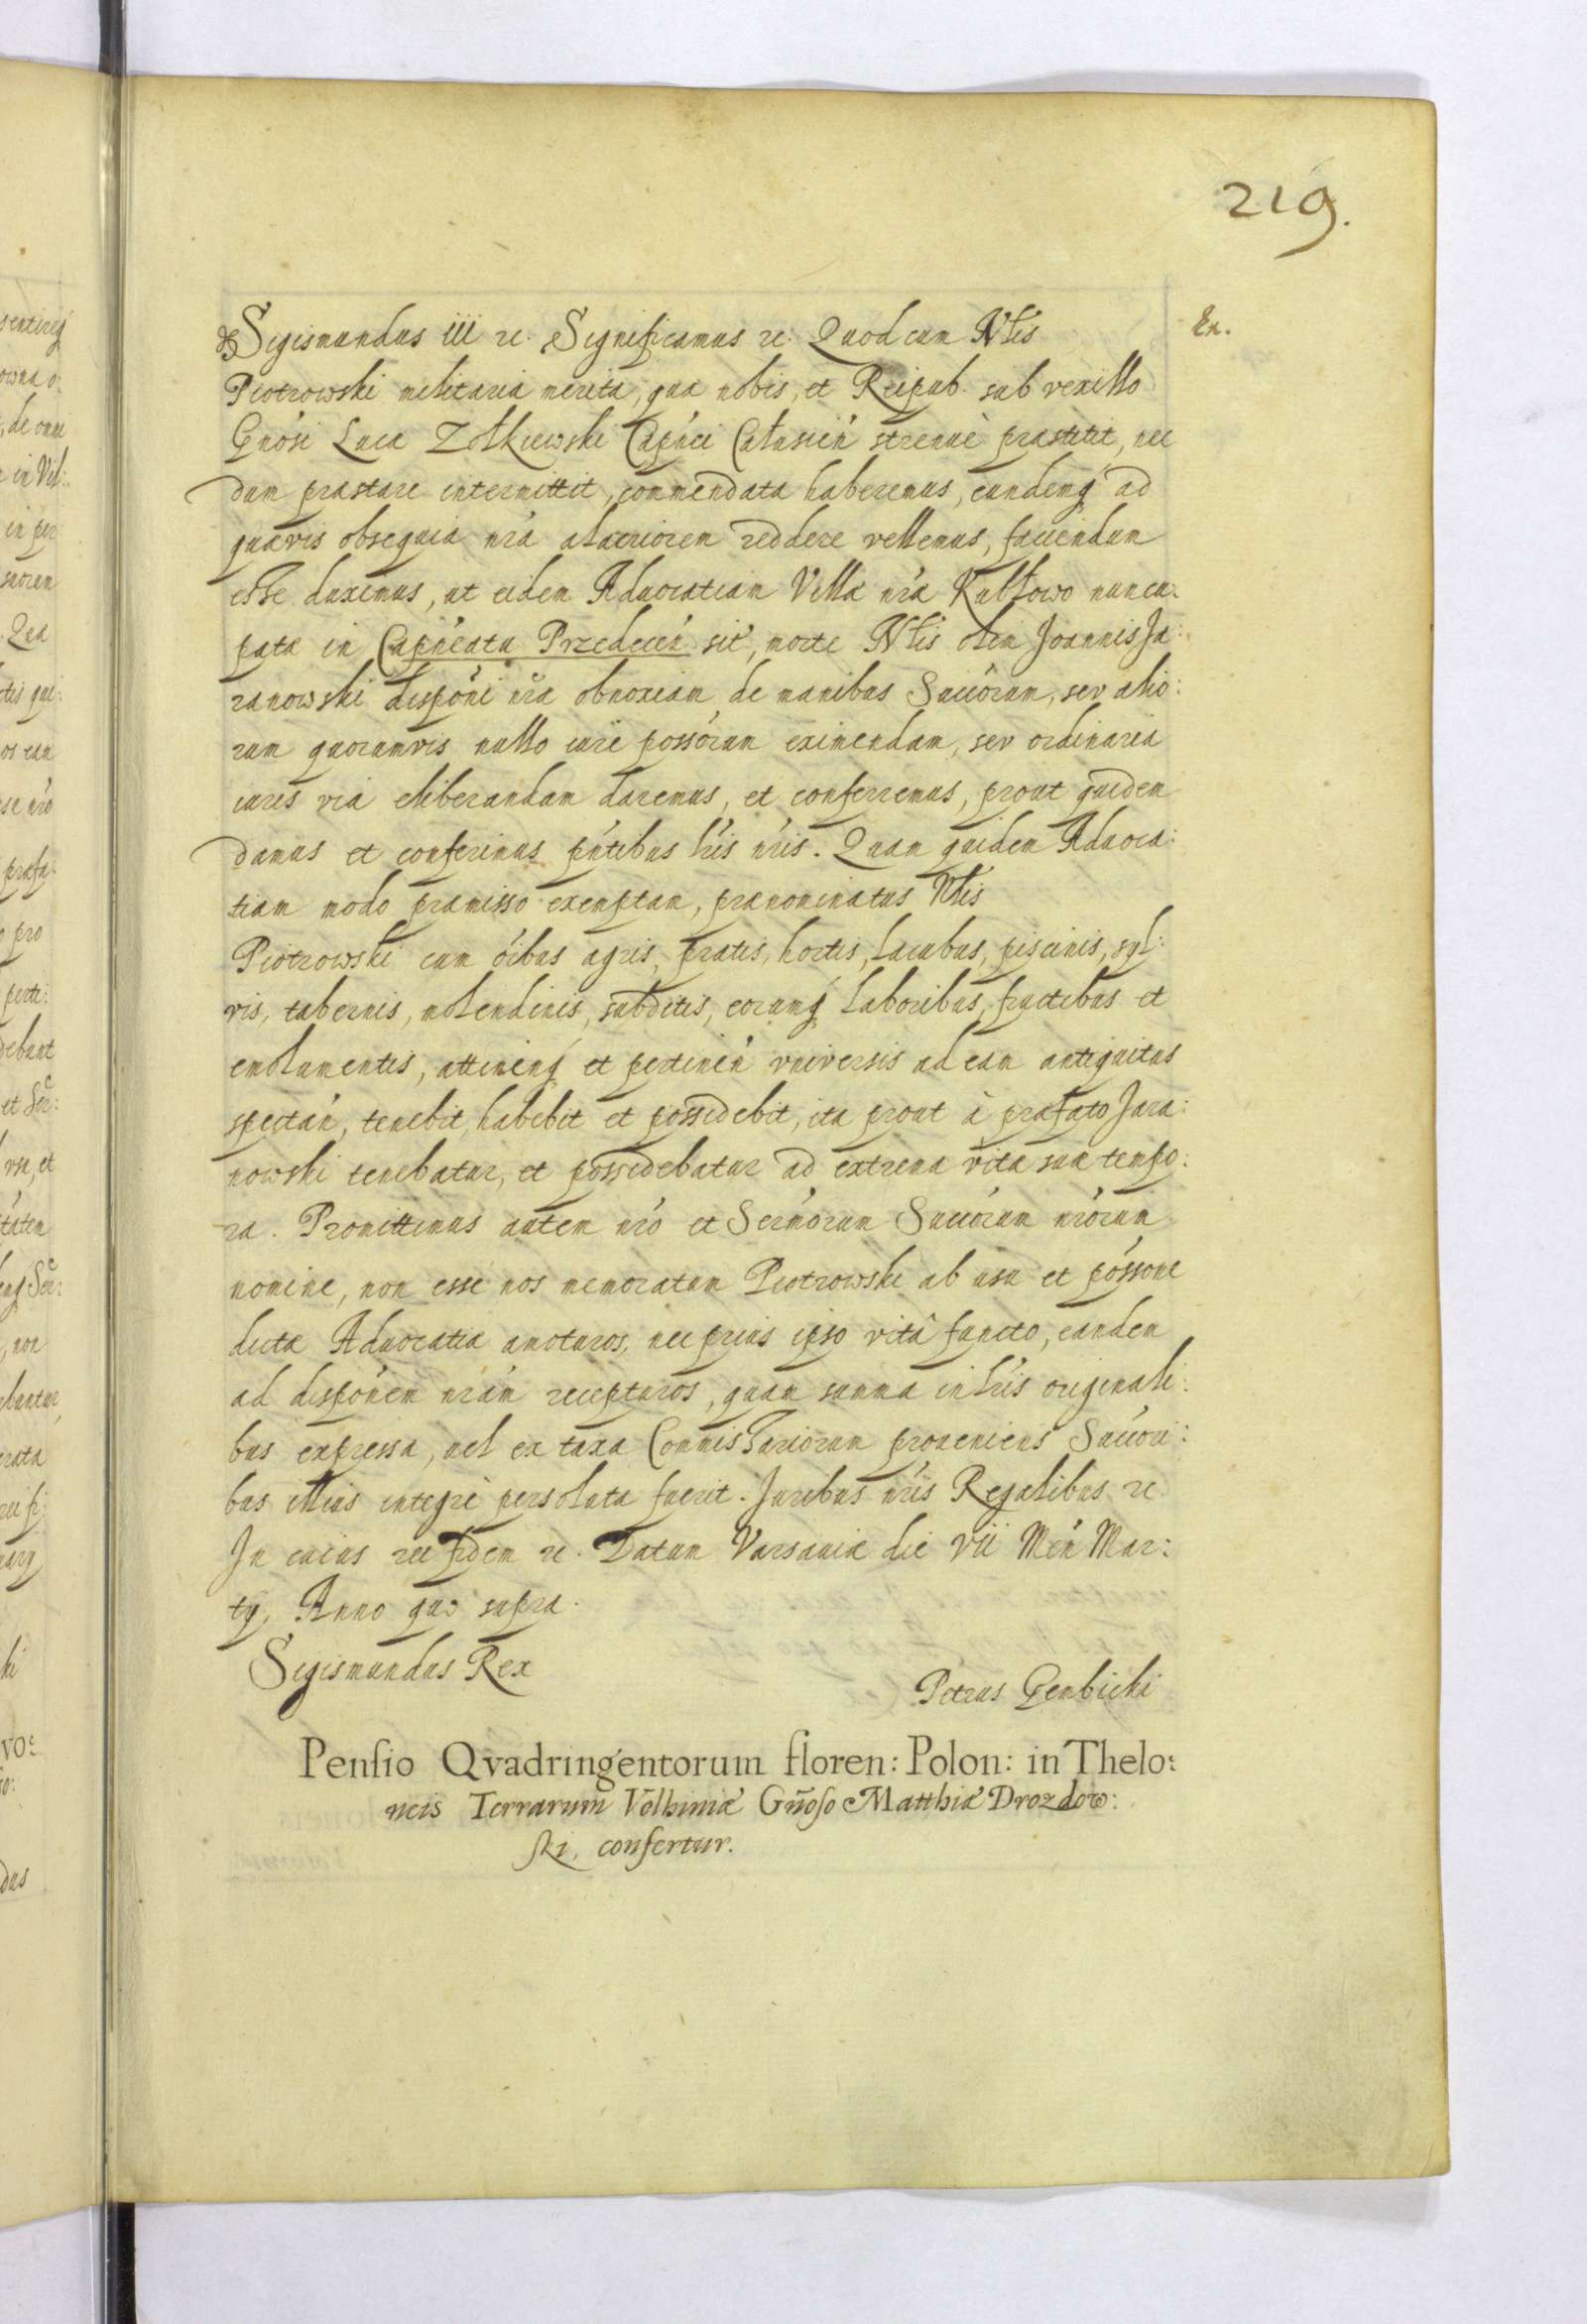 219.
Ex.
Sigismundus iii rc. Significamus rc. Quod cum Nlis
Piotrowski militaria merita, quæ nobis, et Reipub. sub vexillo
Gnosi Lucæ Zołkiewski Capnei Calusien strenuè præstitit, nec
dum præstare intermittit, commendata haberemus, eundemq ad
quævis obsequia nra alacriorem reddere vellemus, faciendum
esse duximus, ut eidem Aduocatiam Villæ nræ Kubłowo nuncu:
patæ in Capneatu Przedecen sit, morte Nlis olim Joannis Ja:
ranowski disponi nræ obnoxiam, de manibus Succorum, sev alio:
rum quorumvis nullo iure possorum eximendam, sev ordinaria
iuris via eliberandam daremus, et conferremus, prout quidem
damus et conferimus pntibus lris nris. Quam quidem Aduoca:
tiam modo præmisso exemptam, prænominatus Nlis
Piotrowski cum oibus agris, pratis, hortis, lacubus, piscinis, syl:
vis, tabernis, molendinis, subditis, eorumq laboribus, fructibus et
emolumentis, attinenq et pertinen vniversis ad eam antiquitus
spectan, tenebit, habebit et possidebit, ita prout à præfato Jara:
nowski tenebatur, et possidebatur ad extrema vitæ suæ tempo:
ra. Promittimus autem nro et Sermorum Succorum nrorum
nomine, non esse nos memoratum Piotrowski ab usu et possone
dictæ Aduocatiæ amoturos, nec prius ipso vitâ functo, eandem
ad disponem nram recepturos, quam summa in lris originali:
bus expressa, uel ex taxa Commissariorum proueniens Succori:
bus illius integrè persoluta fuerit. Juribus nris Regalibus rc
In cuius rei fidem rc. Datum Varsauiæ die vii Men Mar:
tij, Anno quo supra.
Sigismundus Rex
Petrus Gembicki
Pensio Qvadringentorum floren: Polon: in Thelo:
neis Terrarum Volhiniæ Gnoso Matthiæ Drozdow:
ski, confertur.